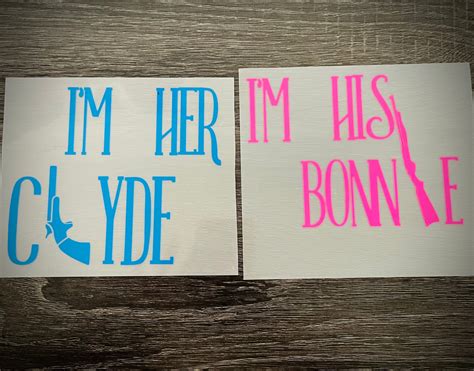 I'M HER
CLYDE
I'M HIS
BONNIE